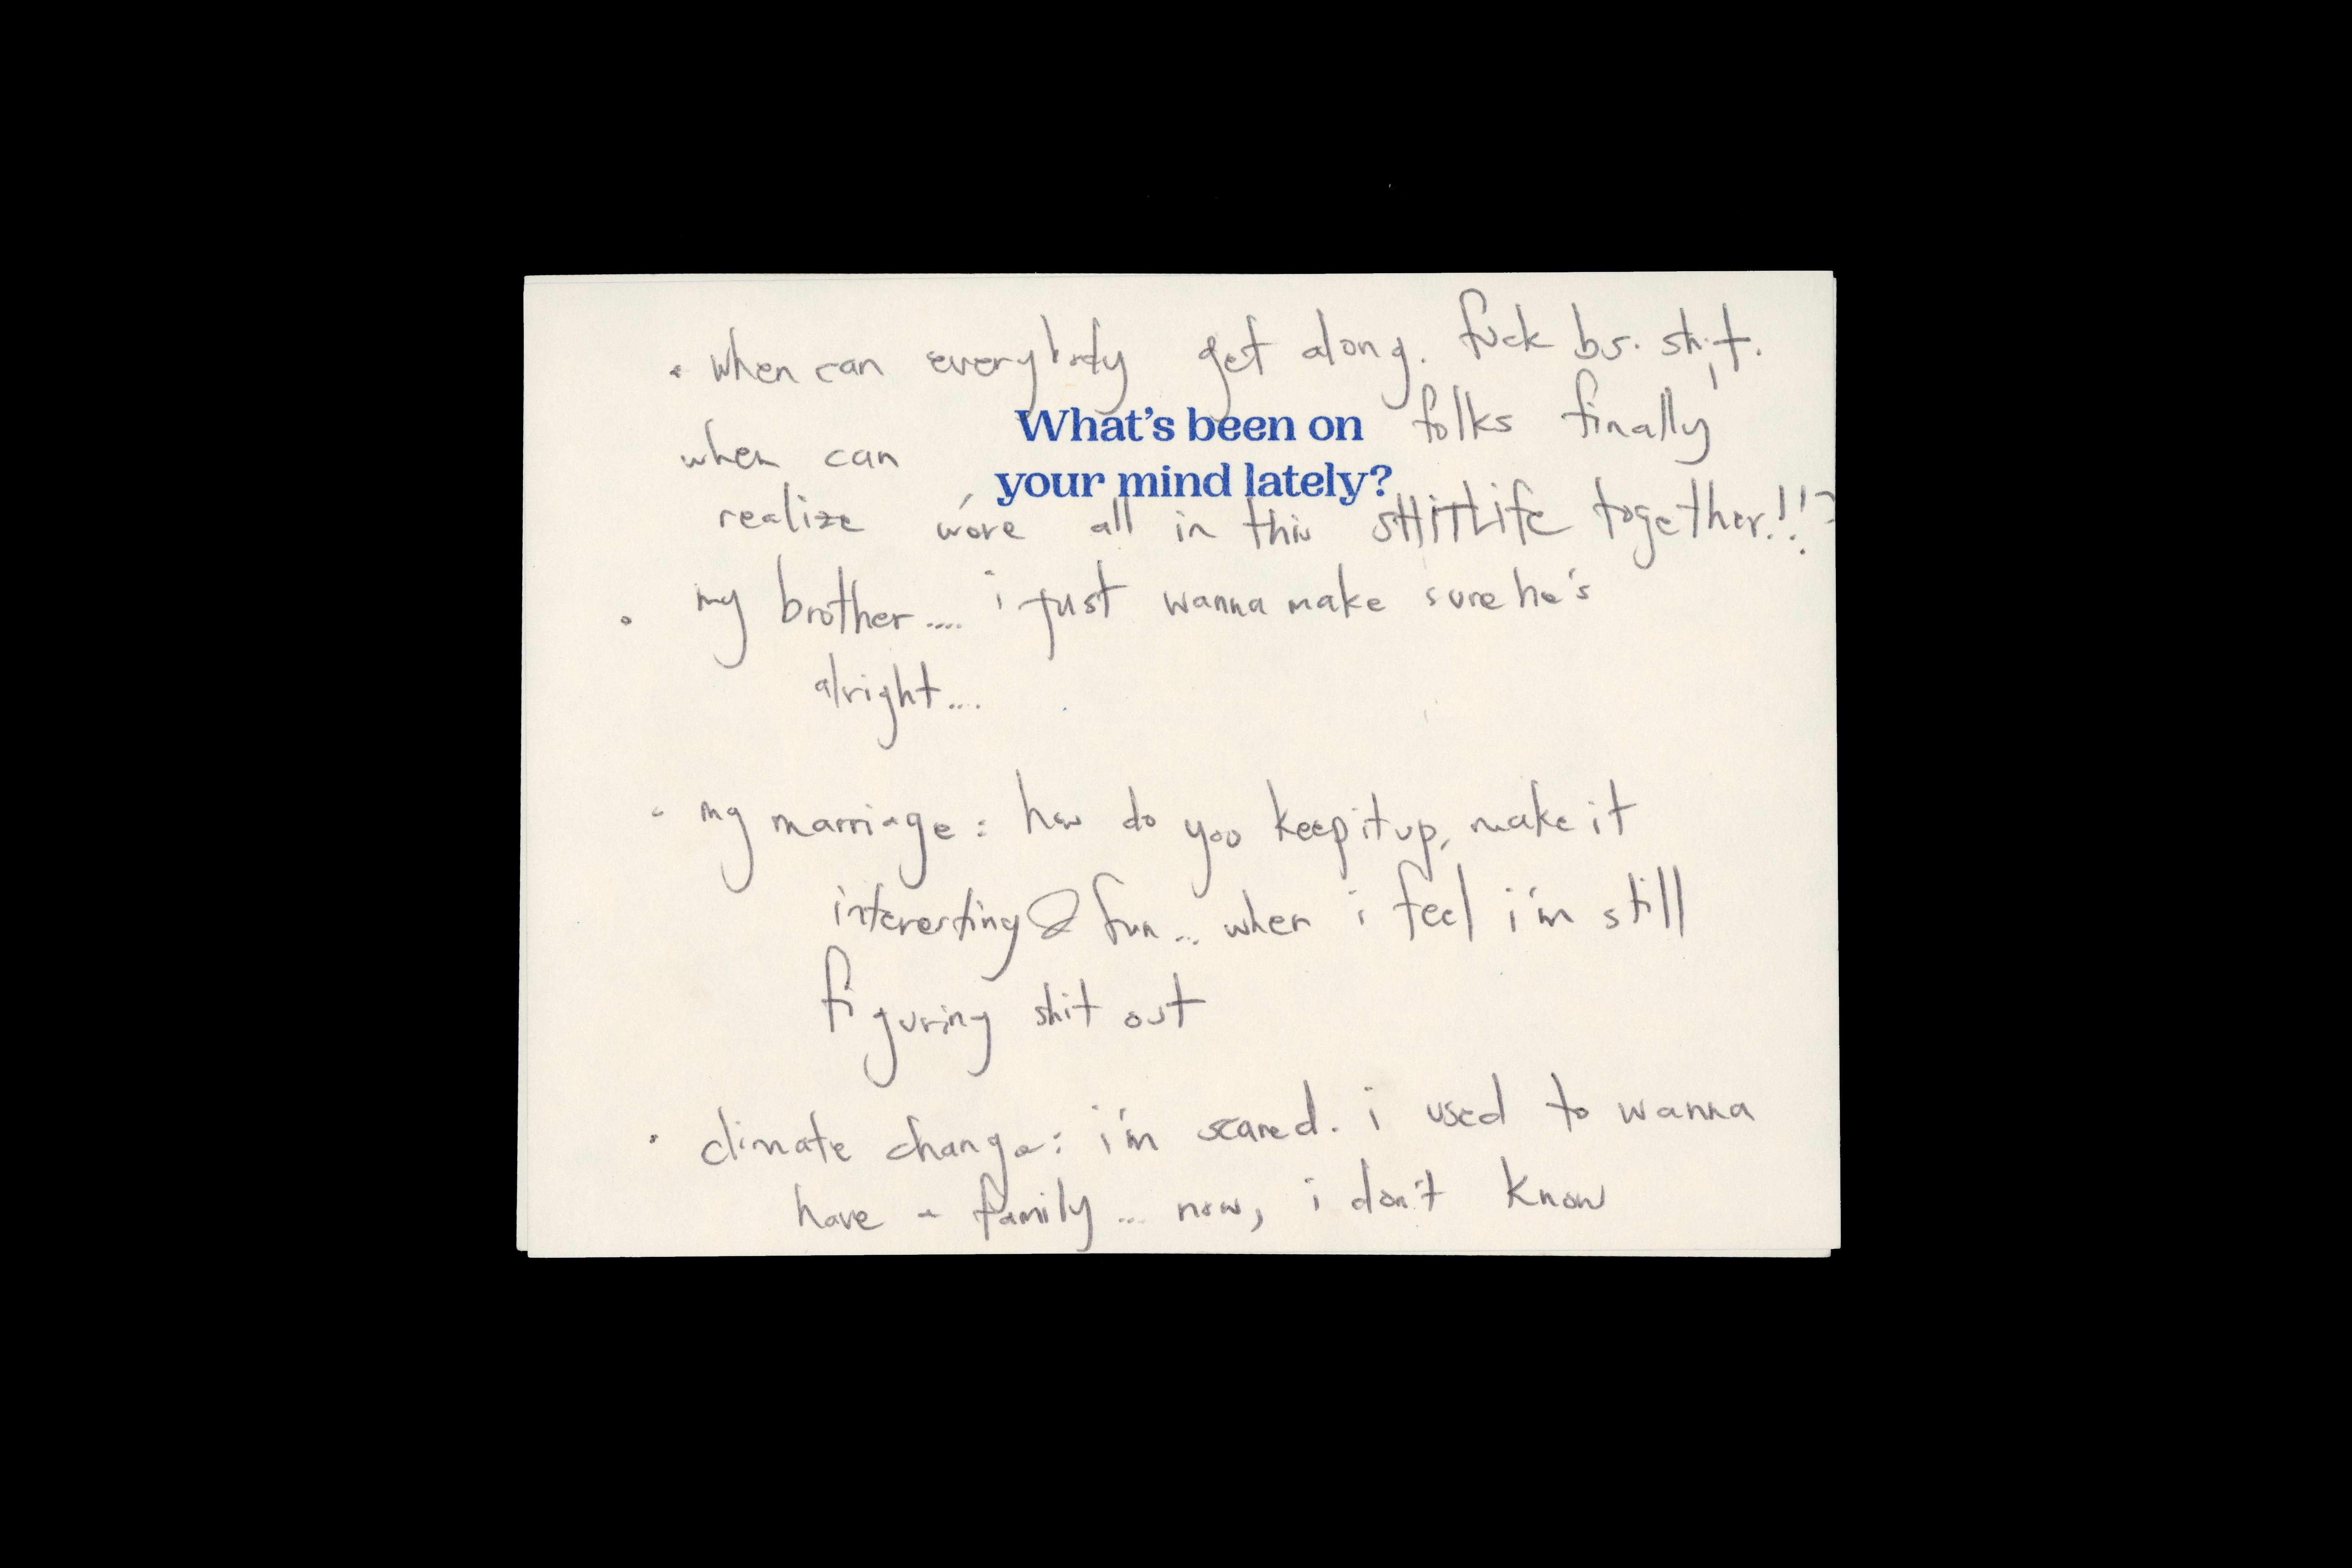 • when can everybody get along. fuck bs. shit.
What's been on
when can folks finally
your mind lately?
realize we're all in this SHITLife together!!?
• my brother.... i just wanna make sure he's
alright....
• my marriage: how do you keep it up, make it
interesting & fun... when i feel i'm still
figuring shit out
• climate change: i'm scared. i used to wanna
have a family... now, i don't know